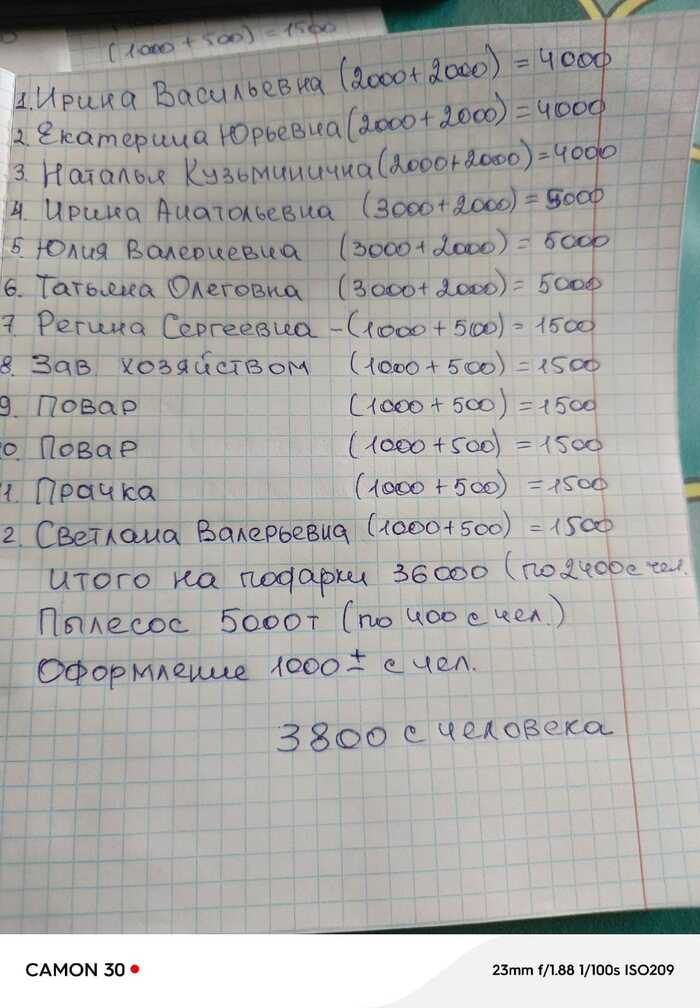 (1000 + 500) = 1500
1. Ирина Васильевна (2000+2000) = 4000
2. Екатерина Юрьевна (2000+2000) = 4000
3. Наталья Кузьминична (2000+2000) = 4000
4. Ирина Анатольевна (3000+2000) = 5000
5. Юлия Валериевна (3000+2000) = 5000
6. Татьяна Олеговна (3000+2000) = 5000
7. Регина Сергеевна - (1000 + 500) = 1500
8. Зав хозяйством (1000 + 500) = 1500
9. Повар (1000 + 500) = 1500
0. Повар (1000 + 500) = 1500
1. Прачка (1000 + 500) = 1500
2. Светлана Валерьевна (1000+500) = 1500
Итого на подарки 36000 (по 2400 с чел.
Пылесос 5000т (по 400 с чел.)
Оформление 1000 ± с чел.
3800 с человека
CAMON 30
23mm f/1.88 1/100s ISO209